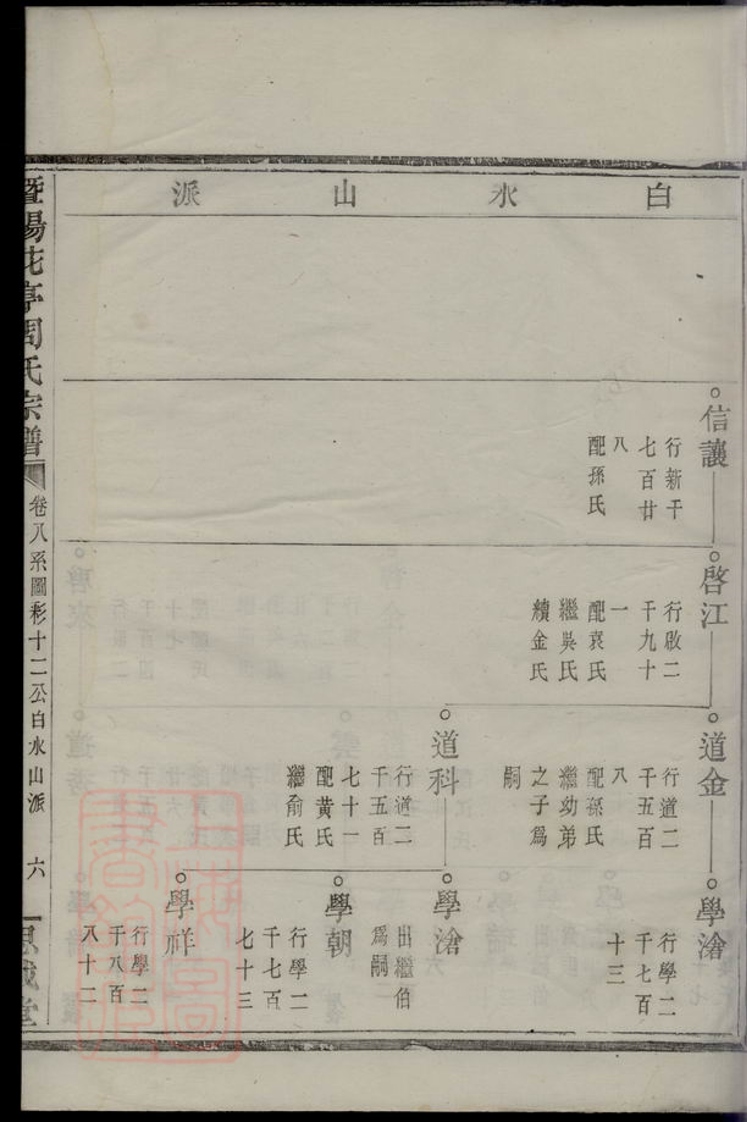 白水山派
信讓
行新千
七百廿
八
配孫氏
啓江
行啟二
千九十
一
配袁氏
繼吳氏
續金氏
道金
行道二
千五百
八
配孫氏
繼幼弟
之子為
嗣
道科
行道二
千五百
七十一
配黃氏
繼俞氏
學滄
行學二
千七百
十三
學滄
出繼伯
為嗣
學朝
行學二
千七百
七十三
學祥
行學二
千八百
八十二
暨陽花亭周氏宗譜
卷八系圖彩十二公白水山派
六